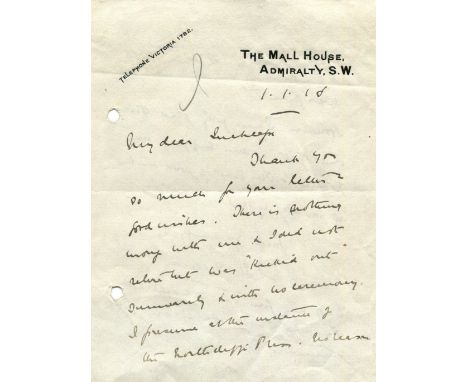 TELEPHONE VICTORIA 1782.
THE MALL HOUSE,
ADMIRALTY, S.W.
1.1.18
My dear Inchcape
Thank you
so much for your letter &
good wishes. There is nothing
wrong with me & I did not
retire but was "kicked out"
summarily & with no ceremony.
I presume at the instance of
the Northcliffe Press. No reason